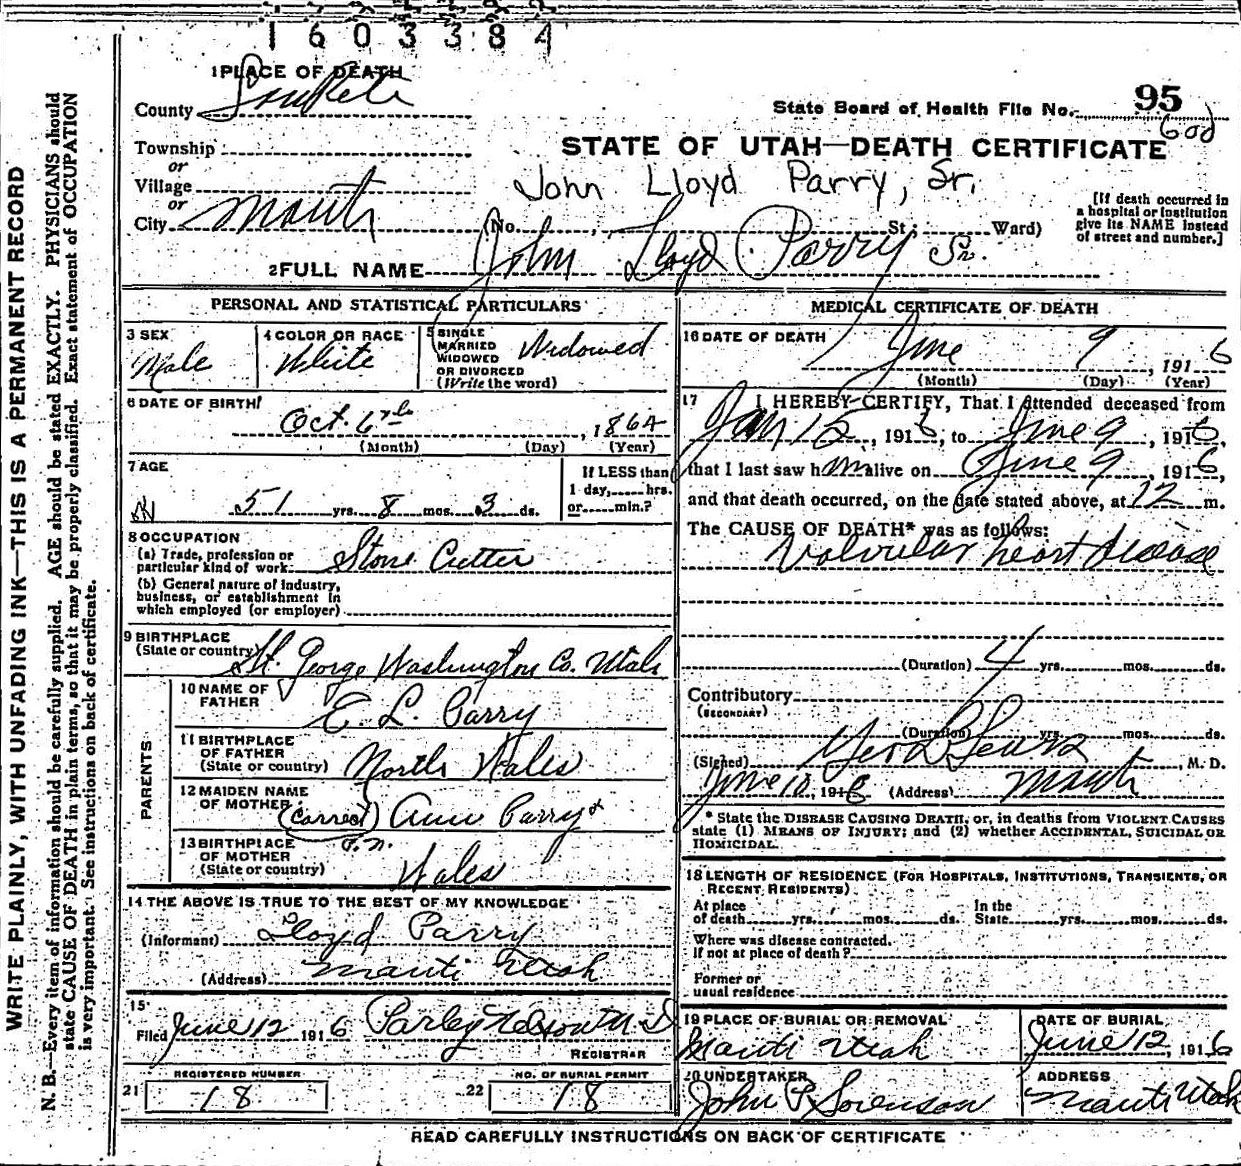 1603384
1 PLACE OF DEATH
County SanPete
State Board of Health File No. 95
Township
or
Village
or
City Manti
STATE OF UTAH—DEATH CERTIFICATE
John Lloyd Parry, Sr.
(No. St.; Ward)
[If death occurred in
a hospital or institution
give its NAME instead
of street and number.]
2 FULL NAME John Lloyd Parry Sr.
PERSONAL AND STATISTICAL PARTICULARS
3 SEX
Male
4 COLOR OR RACE
White
5 SINGLE
MARRIED
WIDOWED
OR DIVORCED
(Write the word)
Widowed
6 DATE OF BIRTH
Oct. 6th, 1864
(Month) (Day) (Year)
7 AGE
51 yrs. 8 mos. 3 ds.
If LESS than
1 day, hrs.
or min.?
8 OCCUPATION
(a) Trade, profession or
particular kind of work Stone Cutter
(b) General nature of industry,
business, or establishment in
which employed (or employer)
9 BIRTHPLACE
(State or country) St. George Washington Co. Utah
PARENTS
10 NAME OF
FATHER E. L. Parry
11 BIRTHPLACE
OF FATHER
(State or country) North Wales
12 MAIDEN NAME
OF MOTHER (correct) Ann Parry
13 BIRTHPLACE
OF MOTHER
(State or country) Wales
14 THE ABOVE IS TRUE TO THE BEST OF MY KNOWLEDGE
(Informant) Lloyd Parry
(Address) Manti Utah
15
Filed June 12 1916 Parley Nelson M.D
REGISTRAR
REGISTERED NUMBER
21 18
NO. OF BURIAL PERMIT
22 18
MEDICAL CERTIFICATE OF DEATH
16 DATE OF DEATH
June 9, 1916
(Month) (Day) (Year)
17 I HEREBY CERTIFY, That I attended deceased from
Jan 15, 1916, to June 9, 1916,
that I last saw him alive on June 9, 1916,
and that death occurred, on the date stated above, at 12 m.
The CAUSE OF DEATH* was as follows:
Valvular heart disease
(Duration) 4 yrs. mos. ds.
Contributory
(SECONDARY)
(Duration) yrs. mos. ds.
(Signed) Geo L Sears, M. D.
June 10, 1916 (Address) Manti
* State the DISEASE CAUSING DEATH, or, in deaths from VIOLENT CAUSES
state (1) MEANS OF INJURY; and (2) whether ACCIDENTAL, SUICIDAL OR
HOMICIDAL.
18 LENGTH OF RESIDENCE (FOR HOSPITALS, INSTITUTIONS, TRANSIENTS, OR
RECENT RESIDENTS)
At place
of death yrs. mos. ds.
In the
State yrs. mos. ds.
Where was disease contracted.
If not at place of death?
Former or
usual residence
19 PLACE OF BURIAL OR REMOVAL
Manti Utah
DATE OF BURIAL
June 12, 1916
20 UNDERTAKER
John P Sorenson
ADDRESS
Manti Utah
READ CAREFULLY INSTRUCTIONS ON BACK OF CERTIFICATE
WRITE PLAINLY, WITH UNFADING INK—THIS IS A PERMANENT RECORD
N. B.—Every item of information should be carefully supplied. AGE should be stated EXACTLY. PHYSICIANS should
state CAUSE OF DEATH in plain terms, so that it may be properly classified. Exact statement of OCCUPATION
is very important. See instructions on back of certificate.